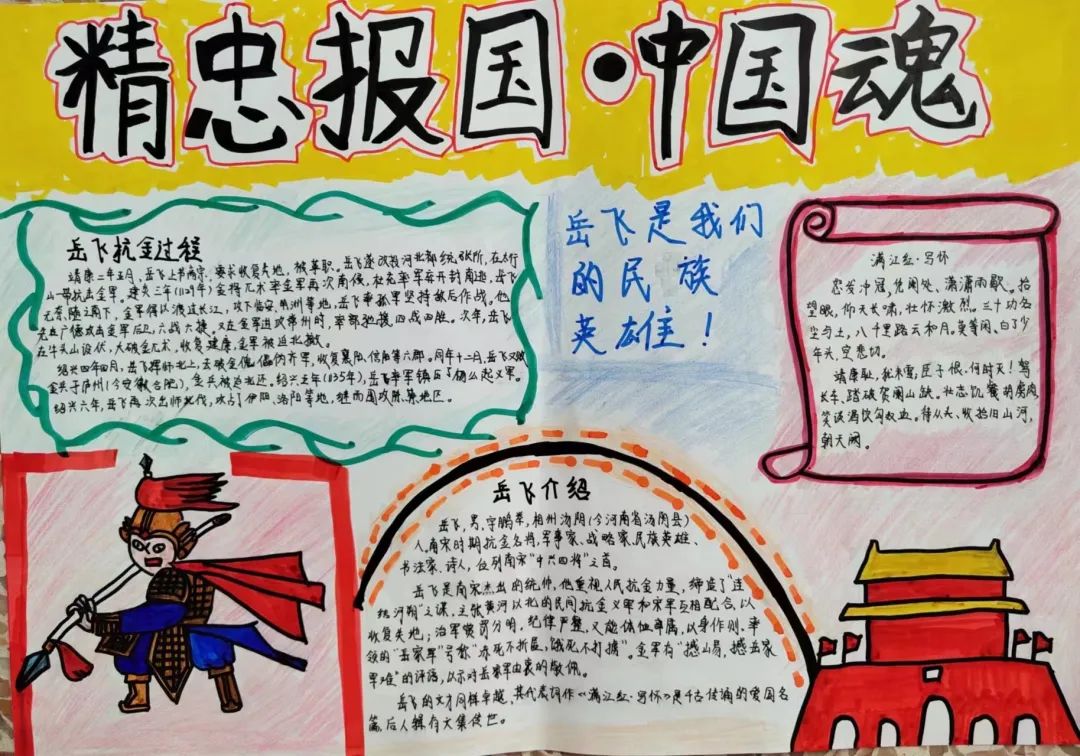 精忠报国·中国魂
岳飞抗金过程
靖康二年五月,岳飞上书南京,要求收复失地,被革职。岳飞遂改投河北都统张所,在太行
山一带抗击金军。建炎三年(1129年)金将兀术率金军再次南侵,杜充率军弃开封南逃,岳飞
无奈,随之南下,金军得以渡过长江,攻下临安、明州等地,岳飞率孤军坚持敌后作战。他
先在广德攻击金军后卫,六战六捷。又在金军进攻常州时,率部驰援,四战四胜。次年,岳飞
在牛头山设伏,大破金兀术,收复建康,金军被迫北撤。
绍兴四年四月,岳飞挥师北上,击破金傀儡伪齐军,收复襄阳、信阳等六郡。同年十二月,岳飞又败
金兵于庐州(今安徽合肥),金兵被迫北还。绍兴五年(1135年),岳飞率军镇压了杨么起义军。
绍兴六年,岳飞再次出师北伐,攻占了伊阳、洛阳等地,继而围攻陈、蔡地区。
岳飞是我们
的民族
英雄!
满江红·写怀
怒发冲冠,凭阑处、潇潇雨歇。抬
望眼,仰天长啸,壮怀激烈。三十功名
尘与土,八千里路云和月。莫等闲、白了少
年头,空悲切。
靖康耻,犹未雪,臣子恨,何时灭!驾
长车,踏破贺阑山缺。壮志饥餐胡虏肉,
笑谈渴饮匈奴血。待从头、收拾旧山河,
朝天阙。
岳飞介绍
岳飞,男,字鹏举,相州汤阴(今河南省汤阴县)
人,南宋时期抗金名将,军事家、战略家、民族英雄、
书法家、诗人,位列南宋“中兴四将”之首。
岳飞是南宋杰出的统帅,他重视人民抗金力量,缔造了“连
结河朔”之谋,主张黄河以北的民间抗金义军和宋军互相配合,以
收复失地;治军赏罚分明,纪律严整,又能体恤部属,以身作则,率
领的“岳家军”号称“冻死不拆屋,饿死不打掳”。金军有“撼山易,撼岳家
军难”的评语,以示对岳家军由衷的敬佩。
岳飞的文才同样卓越,其代表词作《满江红·写怀》是千古传诵的爱国名
篇,后人辑有文集传世。